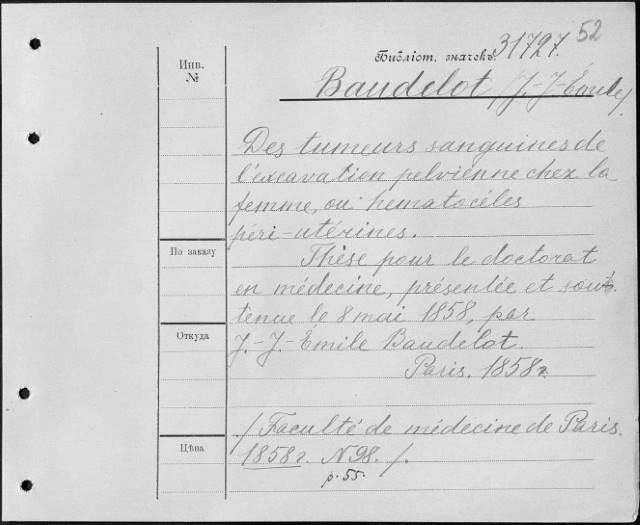 52
Библіот. значекъ. 31727.
Инв.
№
Baudelot /J.-J-Émile/.
Des tumeurs sanguines de
l'excavation pelvienne chez la
femme, ou hematocéles
péri-utérines.
По заказу
Thèse pour le doctorat
en médecine, présentée et sou
tenue le 8 mai 1858, par
Откуда
J.-J.-Émile Baudelot.
Paris. 1858г.
/Faculté de médecine de Paris.
Цѣна
1858г. N98./.
p. 55.